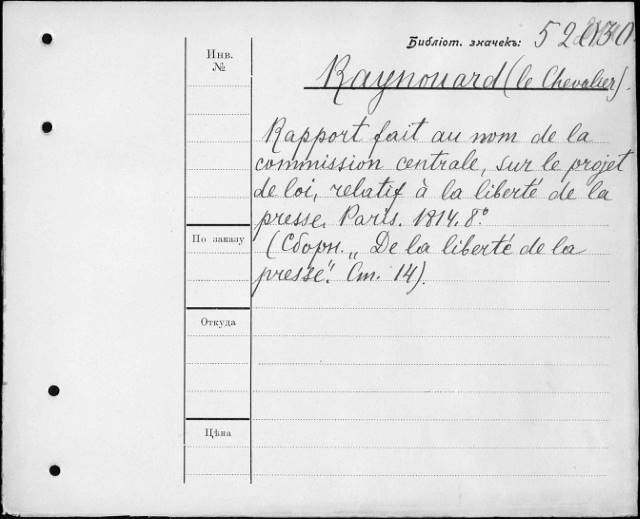 Библіот. значекъ: 52
Инв.
№
Raynouard (le Chevalier).
Rapport fait au nom de la
commission centrale, sur le projet
de loi, relatif à la liberté de la
presse. Paris. 1814. 8º
(Сборн. „De la liberté de la
presse". Ст. 14).
По заказу
Откуда
Цѣна